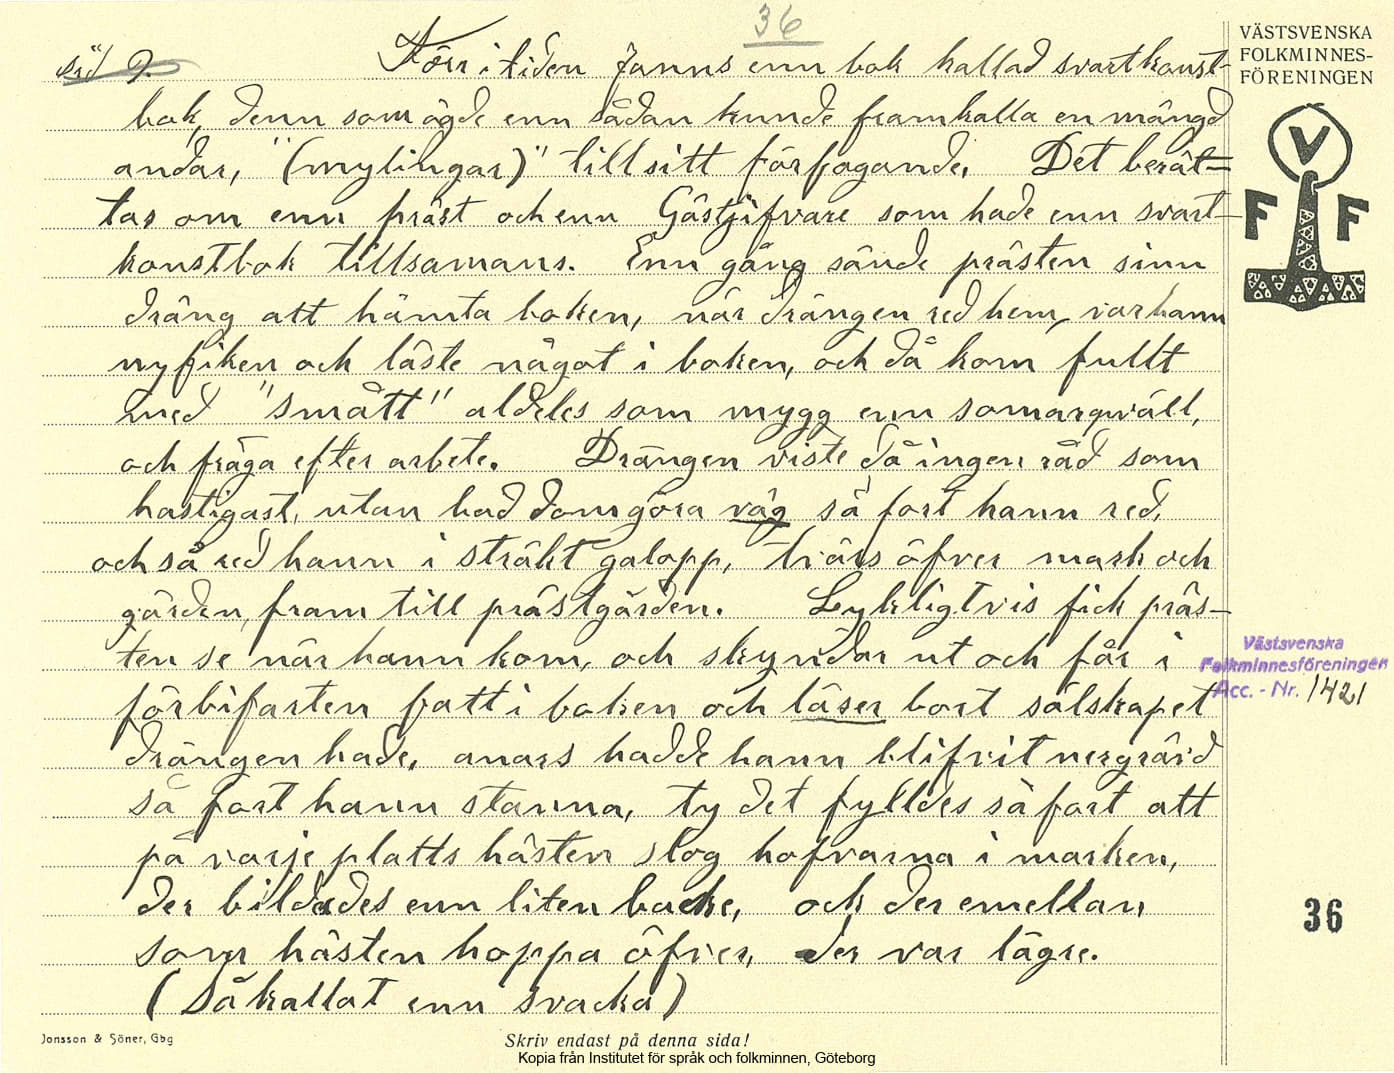 36
sid 9.
Förr i tiden fanns enn bok kallad svartkonst-
bok, denn som ägde enn sådan kunde framkalla en mängd
andar, "(mylingar)" till sitt förfogande. Det berät-
tas om enn präst och enn Gästgifvare som hade enn svart-
konstbok tillsamans. Enn gång sände prästen sinn
dräng att hämta boken, när drängen red hem, var hann
nyfiken och läste något i boken, och då kom fullt
med "smått" aldeles som mygg enn somarqwäll,
och fråga efter arbete. Drängen viste då ingen råd som
hastigast, utan bad dom göra väg så fort hann red,
och så red hann i sträkt galopp, tvärs öfver mark och
gärden, fram till prästgården. Lykligtvis fick präs-
ten se när hann kom, och skyndar ut och får i
förbifarten fatt i boken och läser bort sälskapet
drängen hade, anars hadde hann blifvit nergrävd
så fort hann stanna, ty det fylldes så fort att
på varje platts hästen slog hofvarna i marken,
der bildades enn liten backe, och der emellan
som hästen hoppa öfver, der var lägre.
(Såkallat enn svacka)
VÄSTSVENSKA
FOLKMINNES-
FÖRENINGEN
V
F F
Västsvenska
Folkminnesföreningen
Acc. - Nr. 1421
36
Jonsson & Söner, Gbg
Skriv endast på denna sida!
Kopia från Institutet för språk och folkminnen, Göteborg